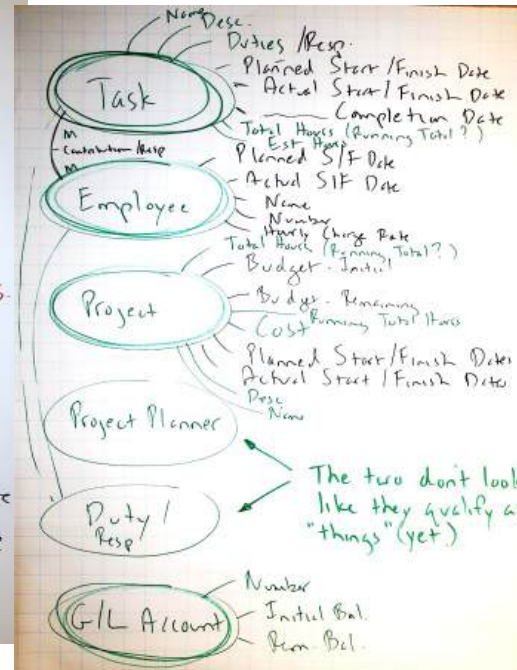 Name
Desc.
Duties / Resp.
Planned Start / Finish Date
Task
Actual Start / Finish Date
Completion Date
Total Hours (Running Total?)
Est Hours
M
Contribution / Resp
M
Planned S/F Date
Actual S/F Date
Employee
Name
Number
Hourly Charge Rate
Total Hours (Running Total?)
Budget - Initial
Project
Budget - Remaining
Cost
Running Total Hours
Planned Start / Finish Dates
Actual Start / Finish Dates
Desc
Name
Project Planner
The two don't look
like they qualify a
"things" (yet)
Duty /
Resp
Number
G/L Account
Initial Bal.
Rem. Bal.